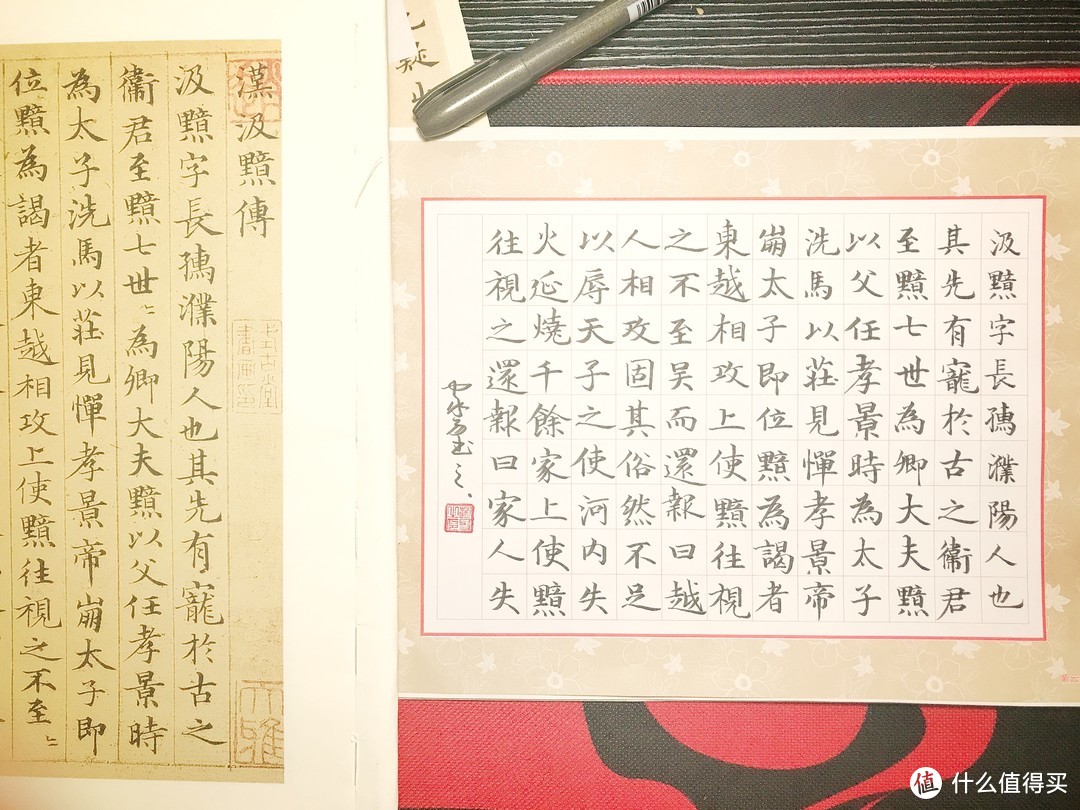 漢汲黯傳
汲黯字長孺濮陽人也其先有寵於古之
衞君至黯七世〻為卿大夫黯以父任孝景時
為太子洗馬以莊見憚孝景帝崩太子即
位黯為謁者東越相攻上使黯往視之不至〻
汲黯字長孺濮陽人也
其先有寵於古之衞君
至黯七世為卿大夫黯
以父任孝景時為太子
洗馬以莊見憚孝景帝
崩太子即位黯為謁者
東越相攻上使黯往視
之不至吴而還報曰越
人相攻固其俗然不足
以辱天子之使河内失
火延燒千餘家上使黯
往視之還報曰家人失
值 什么值得买